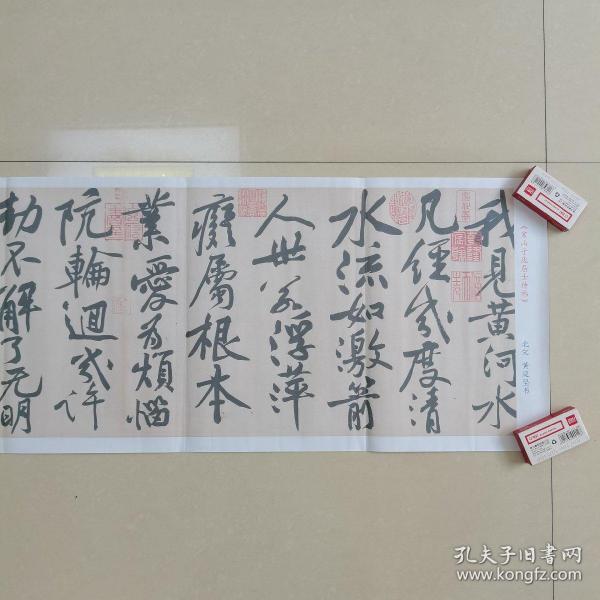 《寒山子庞居士诗帖》
北宋 黄庭坚书
我見黄河水
凡經幾度清
水流如激箭
人世若浮萍
癡屬根本
業愛為煩惱
阬輪迴幾許
劫不解了无明
孔夫子旧书网
www.kongfz.com